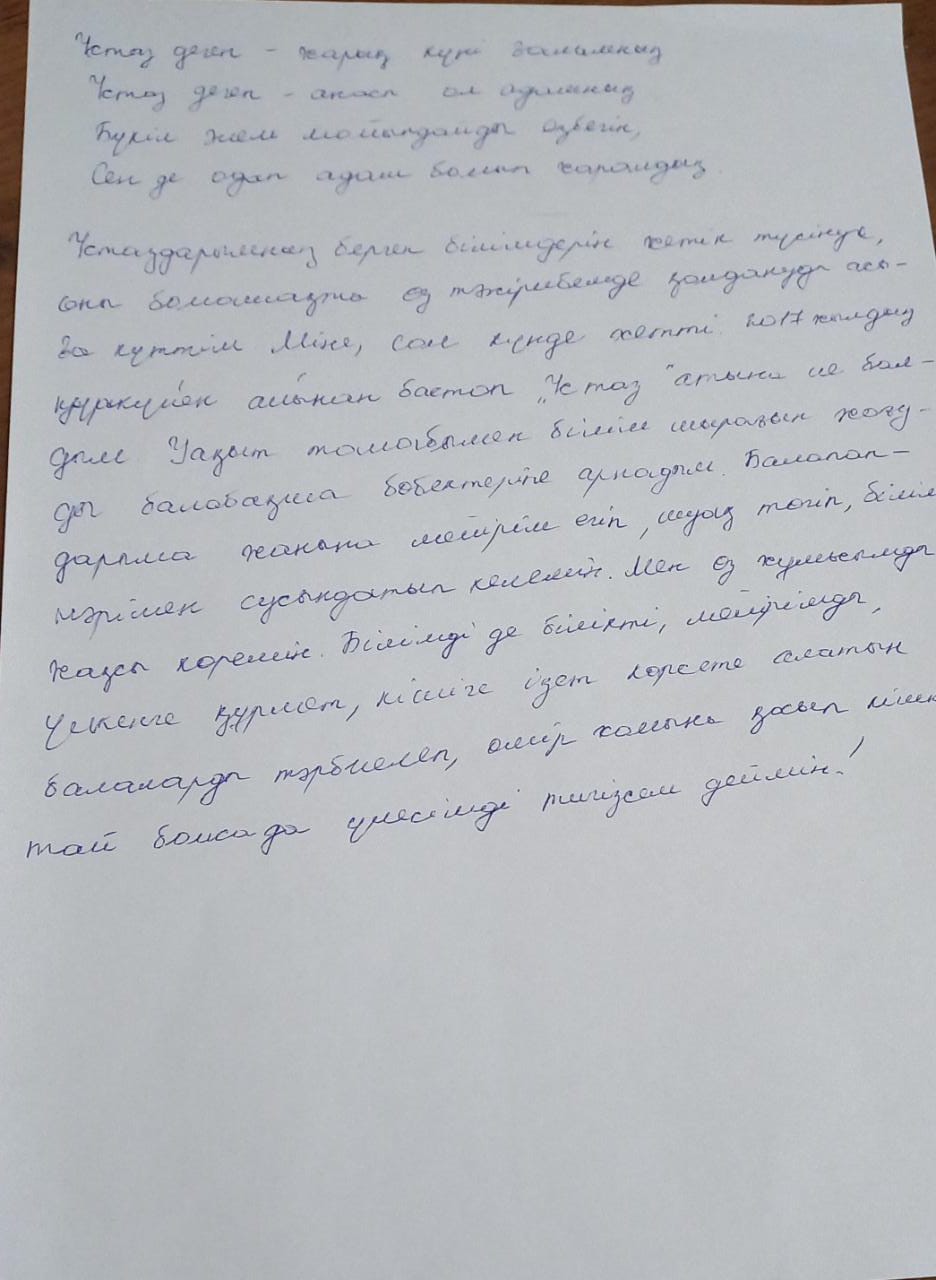 Ұстаз деген - жарық күні ғаламның
Ұстаз деген - анасы ол адамның
Бүкіл әлем мойындайды еңбегін,
Сен де одан адам болып жаралдың.
Ұстаздарымның берген білімдерін жетік түсінуге,
оны болашақта өз тәжірибемде қолдануды асы-
ға күттім Міне, сол күнде жетті. 2017 жылдың
қыркүйек айынан бастап „Ұстаз" атына ие бол-
дым Уақыт талабымен білім шырағын жағу-
ды балабақша бөбектеріне арнадым. Балапан-
дарыма жанына мейірім егіп, шуақ төгіп, білім
нәрімен сусындатып келемін. Мен өз жұмысымды
жақсы көремін. Білімді де білікті, мейірімді,
үлкенге құрмет, кішіге ізет көрсете алатын
балаларды тәрбиелеп, өмір жолына қосып кішкен
тай болсада үлесімді тигізсем деймін!